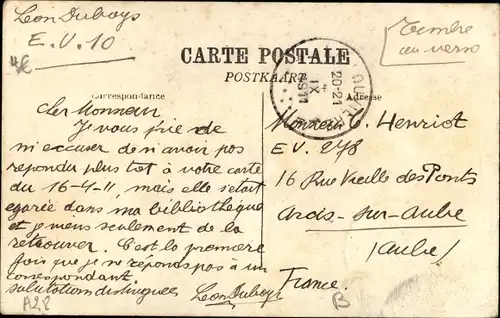 Leon Duboys
E.V. 10
Timbre
au verso
CARTE POSTALE
POSTKAART
Correspondance
Adresse
20-21
4
IX
1911
Cher Monsieur
Je vous prie de
m'excuser de n'avoir pas
repondu plus tôt à votre carte
du 16-4-11, mais elle s'etait
egarée dans ma bibliothèque
et je viens seulement de la
retrouver. C'est la première
fois que je ne réponds pas à un
correspondant
salutations distinguées Leon Duboys
Monsieur C. Henriot
E.V. 278
16 Rue Vieille des Ponts
Arcis-sur-Aube
(Aube)
France.
A28
B